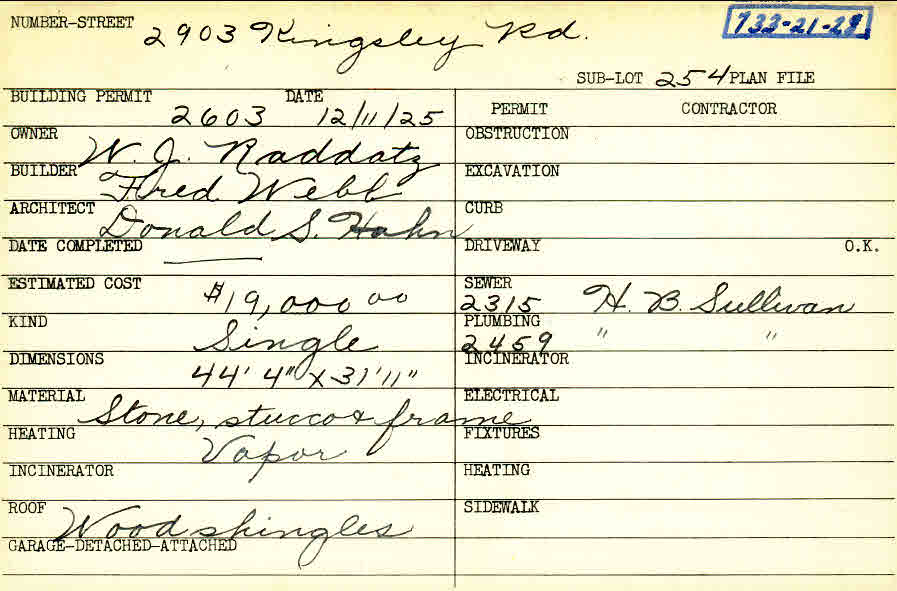 NUMBER-STREET 2903 Kingsley Rd. 733-21-28
SUB-LOT 254 PLAN FILE
BUILDING PERMIT 2603 DATE 12/11/25
PERMIT CONTRACTOR
OWNER W. J. Raddatz
OBSTRUCTION
BUILDER Fred Webb
EXCAVATION
ARCHITECT Donald S. Hahn
CURB
DATE COMPLETED ——
DRIVEWAY O.K.
ESTIMATED COST $19,000 00
SEWER 2315 H. B. Sullivan
KIND Single
PLUMBING 2459 " "
DIMENSIONS 44' 4" x 31' 11"
INCINERATOR
MATERIAL Stone, stucco & frame
ELECTRICAL
HEATING Vapor
FIXTURES
INCINERATOR
HEATING
ROOF Wood shingles
SIDEWALK
GARAGE-DETACHED-ATTACHED